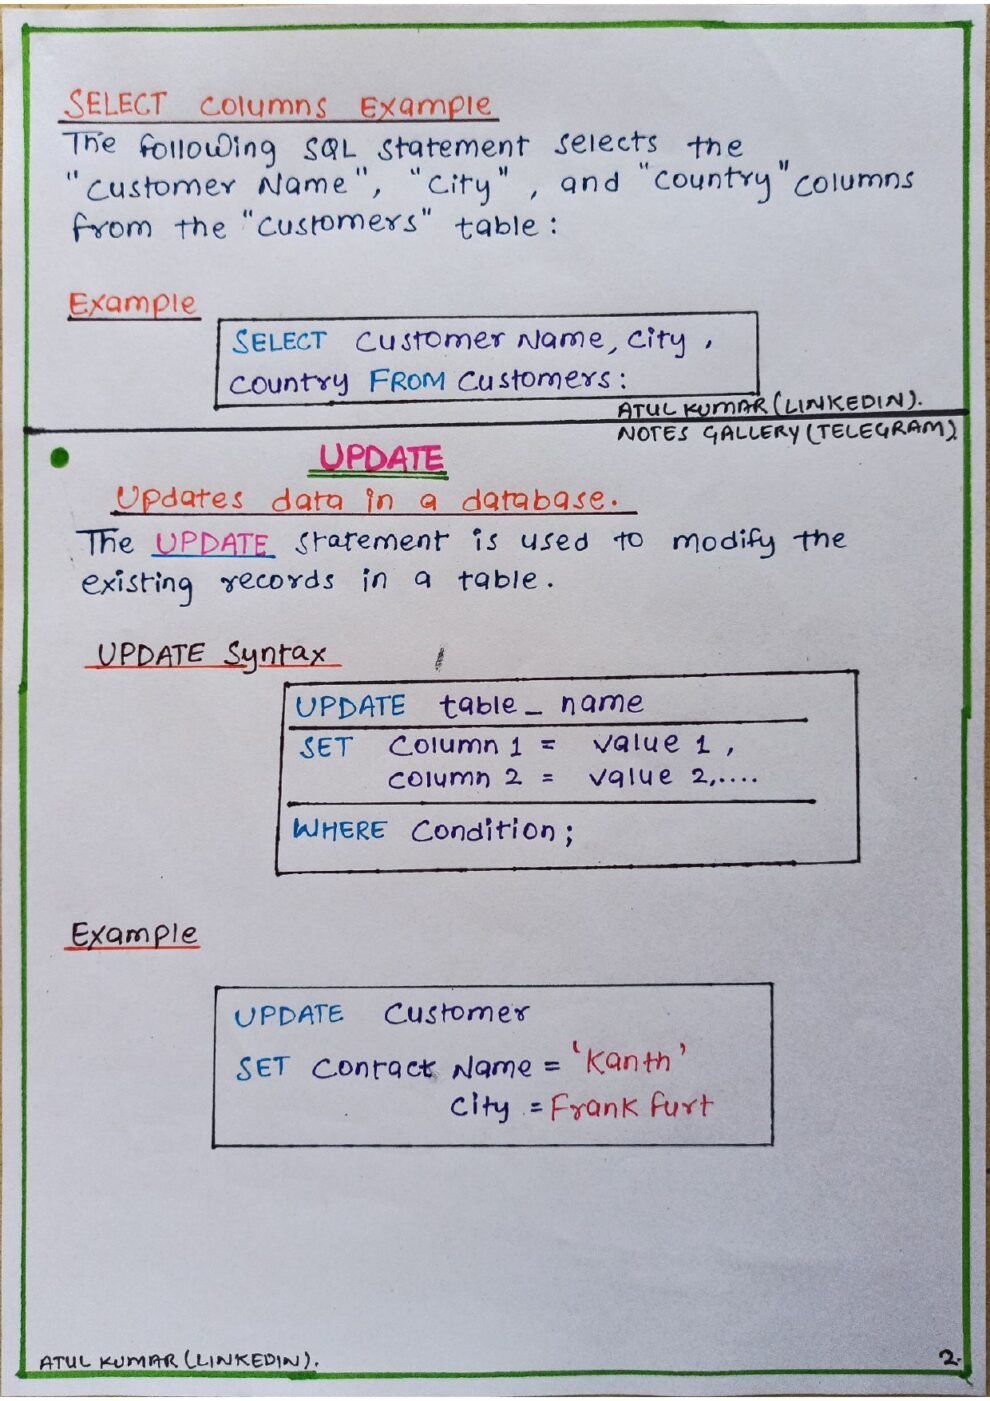 SELECT Columns Example
The following SQL statement selects the
"Customer Name", "City", and "Country" columns
from the "Customers" table:
Example
SELECT Customer Name, City,
Country FROM Customers:
ATUL KUMAR (LINKEDIN).
NOTES GALLERY (TELEGRAM)
UPDATE
Updates data in a database.
The UPDATE statement is used to modify the
existing records in a table.
UPDATE Syntax
UPDATE table_name
SET Column 1 = value 1,
column 2 = value 2,....
WHERE Condition;
Example
UPDATE Customer
SET Contact Name = 'Kanth'
City = Frank furt
ATUL KUMAR (LINKEDIN).
2.